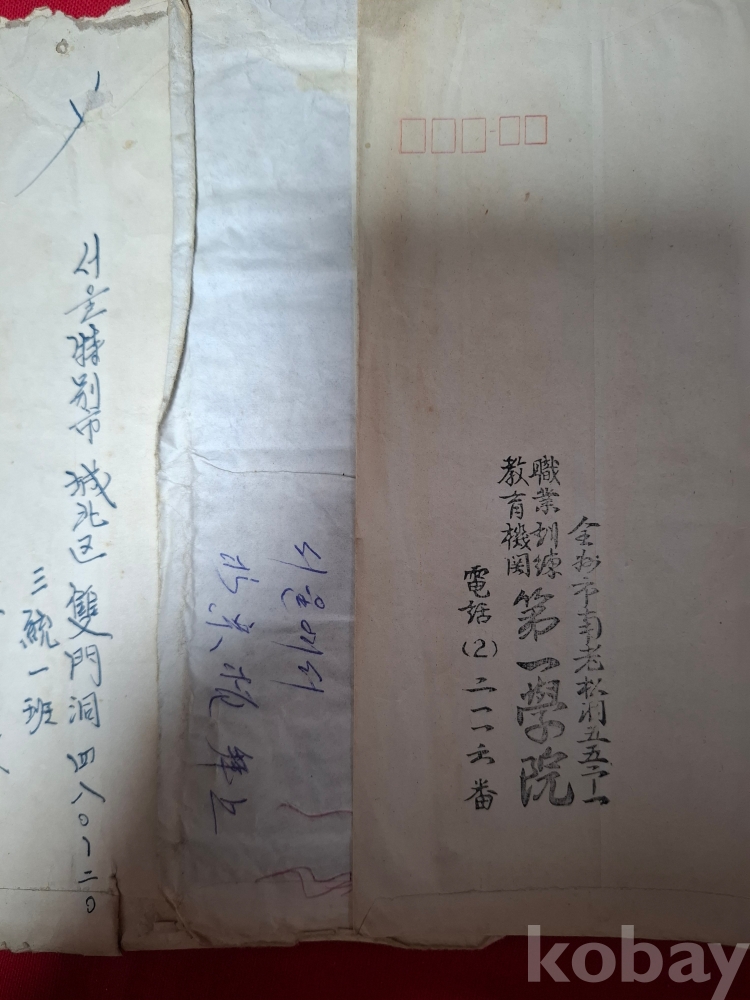 全州市南老松洞
職業訓練
教育機関
第一學院
電話(2)二一一六番
서울에서
拜上
서울特別市 城北区 雙門洞 四八〇~二〇
三統一班
kobay